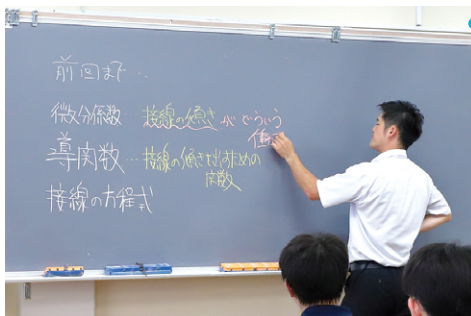 前回まで…
微分係数…接線の傾きがどういう
値
導関数…接線の傾きを出すための
関数
接線の方程式